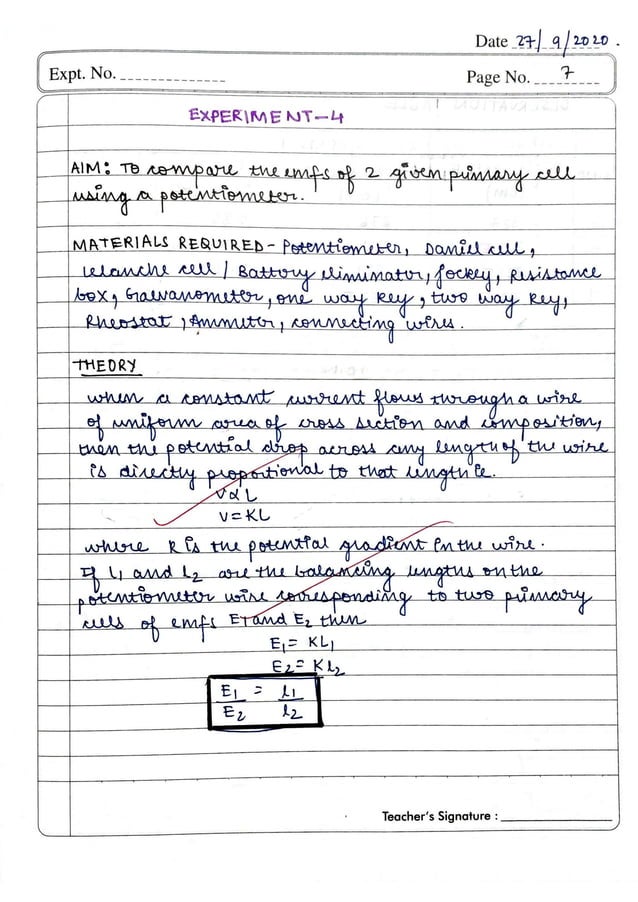 Date 27/9/2020.
Expt. No.
Page No. 7
EXPERIMENT-4
AIM: To compare the emfs of 2 given primary cell
using a potentiometer.
MATERIALS REQUIRED - Potentiometer, Daniel cell,
lelanche cell / Battery eliminator, Jockey, Resistance
box, Galvanometer, one way key, two way key,
Rheostat, Ammeter, connecting wires.
THEORY
when a constant current flows through a wire
of uniform area of cross section and composition,
then the potential drop across any length of the wire
is directly propotional to that length ie.
V∝L
V=KL
where K is the potential gradient in the wire.
If l1 and l2 are the balancing lengths on the
potentiometer wire corresponding to two primary
cells of emfs E1 and E2 then
E1 = Kl1
E2 = Kl2
E1/E2 = l1/l2
Teacher's Signature :